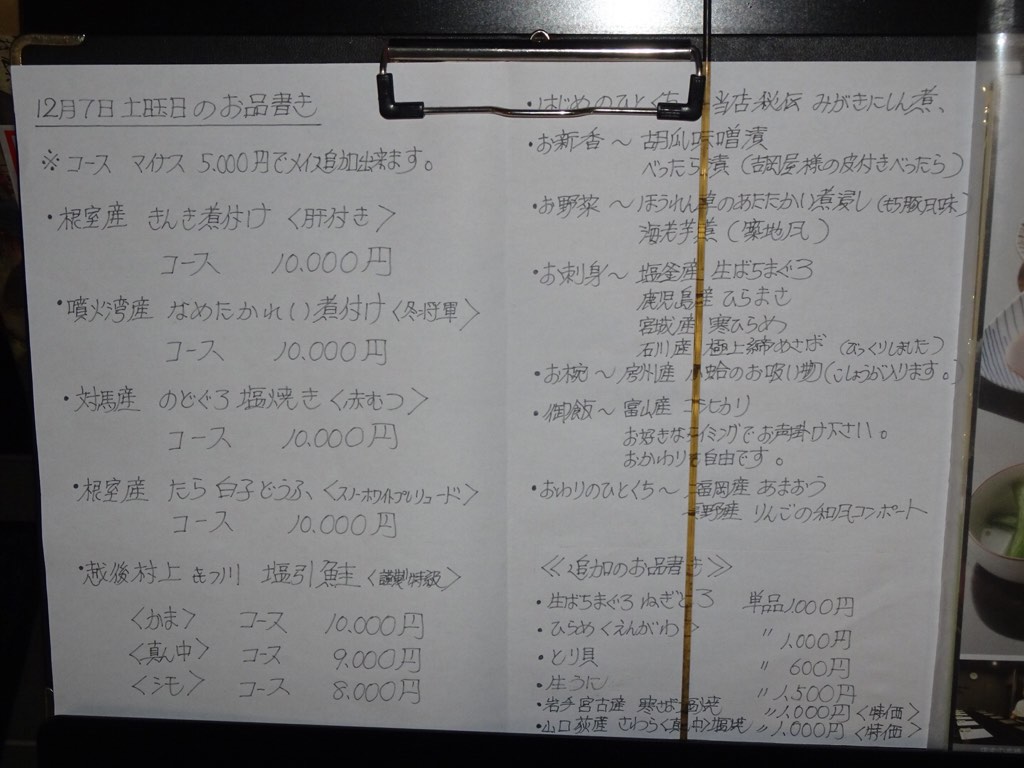 12月7日 土曜日のお品書き
※ コース マイナス 5.000円でメイン追加出来ます。
・根室産 きんき煮付け〈肝付き〉
コース 10.000円
・噴火湾産 なめたかれい煮付け〈冬将軍〉
コース 10.000円
・対馬産 のどぐろ塩焼き〈赤むつ〉
コース 10.000円
・根室産 たら白子どうふ、〈スノーホワイトプレリュード〉
コース 10.000円
・越後村上 塩引鮭〈謹製特級〉
〈かま〉 コース 10.000円
〈真ん中〉 コース 9.000円
〈シモ〉 コース 8.000円
・はじめのひとくち 当店秘伝 みがきにしん煮、
・お新香〜 胡瓜味噌漬
べったら漬(吉岡屋様の皮付きべったら)
・お野菜〜 ほうれん草のあたたかい煮浸し
海老芋煮(築地風)
・お刺身〜 塩釜産 生ばちまぐろ
鹿児島産 ひらまさ
宮城産 寒ひらめ
石川産 極上締めさば (びっくりしました)
・お椀〜 房州産 小蛤のお吸い物(こしょうが入ります。)
・御飯〜 富山産 コシヒカリ
お好きなタイミングでお声掛け下さい。
おかわり自由です。
・おわりのひとくち〜 福岡産 あまおう
長野産 りんごの和風コンポート
《追加のお品書き》
・生ばちまぐろ ねぎとろ 単品1.000円
・ひらめ〈えんがわ〉 〃 1.000円
・とり貝 〃 600円
・生うに 〃 1,500円
・岩手宮古産 寒さば塩焼 〃 1,000円〈特価〉
・山口萩産 さわら〈真ん中〉塩焼 〃 1,000円〈特価〉